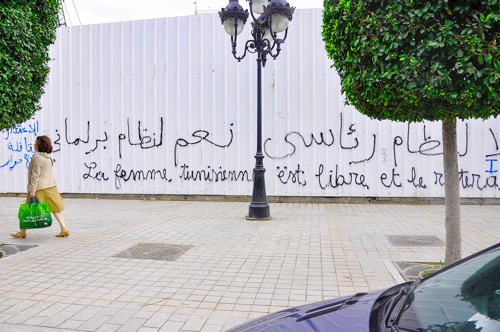 لنظام رئاسي نعم لنظام برلماني
La femme tunisienne est libre et le restera
قافلة